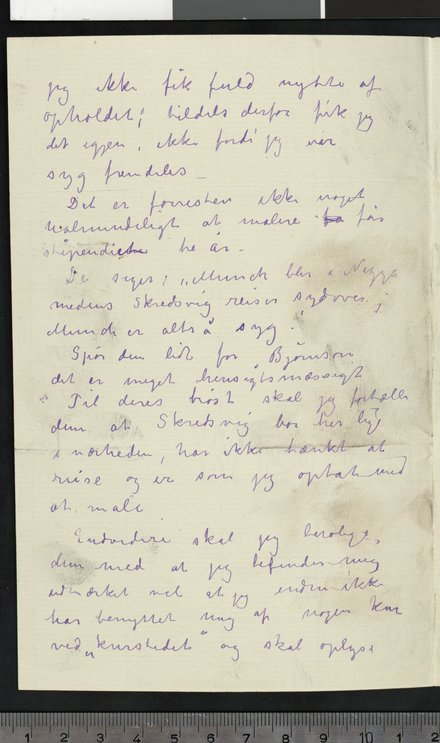 jeg ikke fik fuld nytte af
opholdet; tildels derfor fik jeg
det igjen, ikke fordi jeg var
syg fremdeles –
Det er forresten ikke noget
ualmindeligt at malere får
stipendiet tre år.
De siger; „Munch blir i Nizza
medens Skredsvig reiser sydover;
Munch er altså syg."
Spør dem lidt for Bjørnson
det er meget hensigtsmæssigt
Til deres trøst skal jeg fortælle
dem at Skredsvig bor her lige
i nærheden, har ikke tænkt at
reise og er som jeg optat med
at male
Endvidere skal jeg berolige
dem med at jeg befinder mig
udmærket vel at jeg endnu ikke
har benyttet mig af nogen kur
ved „kurstedet" og skal oplyse